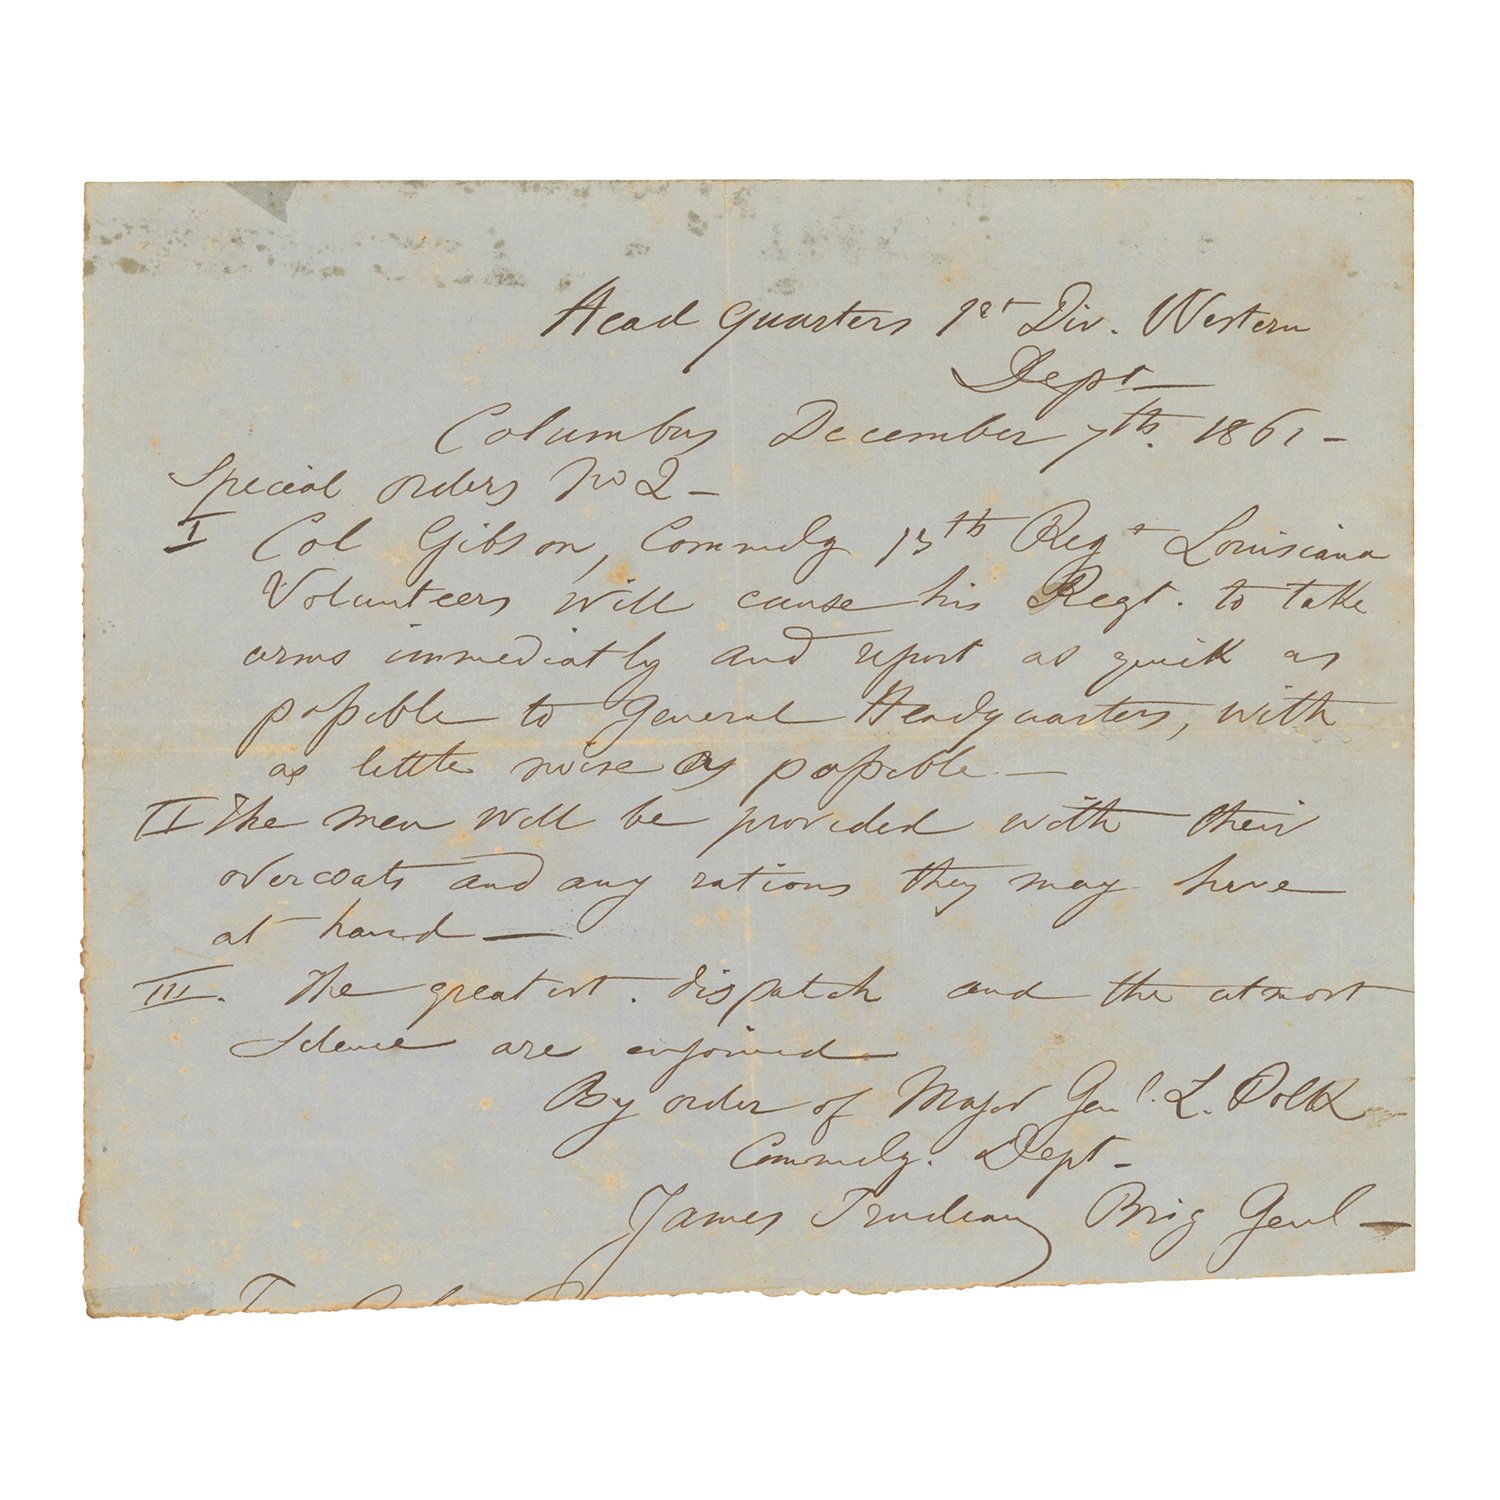 Head Quarters 1st Div. Western
Dept —
Columbus December 7th. 1861 —
Special orders No 2 —
I Col Gibson, Commdg 13th Regt Louisiana
Volunteers will cause his Regt. to take
arms immediatly and report as quick as
possible to General Headquarters, with
as little noise as possible —
II The men will be provided with their
overcoats and any rations they may have
at hand —
III. The greatest dispatch and the utmost
silence are enjoined
By order of Major Genl. L. Polk
Commdg. Dept —
James Trudeau Brig Genl —